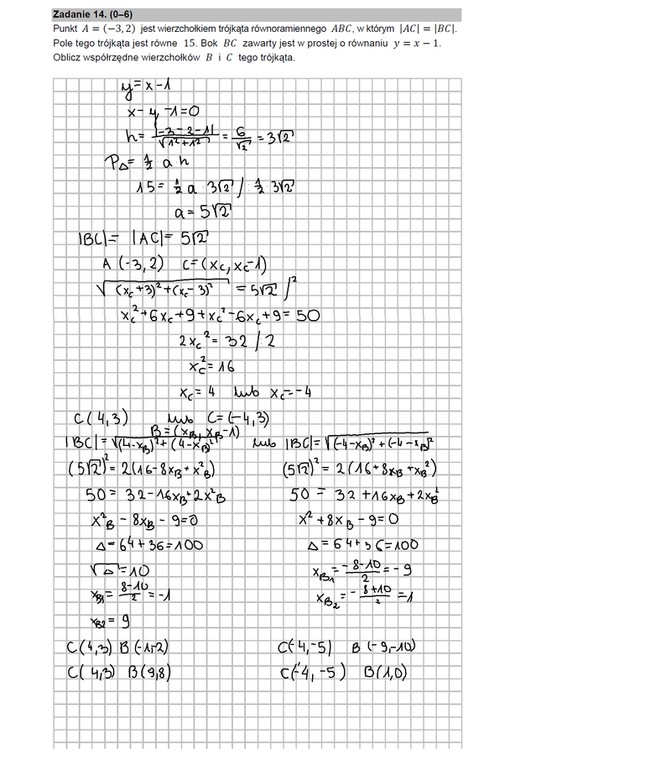 Zadanie 14. (0–6)
Punkt A = (−3, 2) jest wierzchołkiem trójkąta równoramiennego ABC, w którym |AC| = |BC|.
Pole tego trójkąta jest równe 15. Bok BC zawarty jest w prostej o równaniu y = x − 1.
Oblicz współrzędne wierzchołków B i C tego trójkąta.
y = x −1
x − y −1=0
h= |−3 −2 −1| / √(1²+1²) = 6/√2 = 3√2
P△= 1/2 a h
15 = 1/2 a 3√2 / 1/2 3√2
a = 5√2
|BC|= |AC|= 5√2
A (−3, 2) C=(xc, xc−1)
√((xc+3)²+(xc−3)²) = 5√2 /²
xc²+6xc+9+xc²−6xc+9= 50
2xc²= 32 /2
xc²=16
xc= 4 lub xc=−4
C( 4, 3) lub C= (−4, 3)
B = (xB, xB −1)
|BC|=√((4−xB)²+(4−xB)²) lub |BC|=√((−4−xB)²+(−4−xB)²)
(5√2)²=2(16−8xB+x²B) (5√2)² = 2(16+8xB+xB²)
50= 32−16xB+2x²B 50 = 32 +16xB+2xB²
x²B − 8xB − 9=0 x² +8xB −9=0
△=64+36=100 △= 64+36=100
√△=10 xB1= −8−10/2 = −9
xB1= 8−10/2 = −1 xB2= −8+10/2 =1
xB2= 9
C(4,3) B (−1,−2) C(−4,−5) B (−9,−10)
C( 4,3) B(9,8) C(−4, −5) B(1,0)